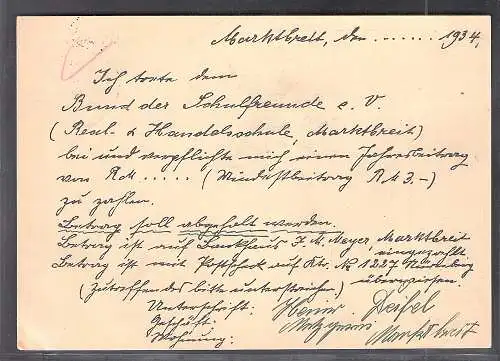 Marktbreit, den ....... 1934,
Ich trete dem
Bund der Schulfreunde e. V.
(Real- & Handelsschule, Marktbreit)
bei und verpflichte mich einen Jahresbeitrag
von RM ..... (Mindestbeitrag RM 3.-)
zu zahlen.
Betrag soll abgeholt werden.
Betrag ist auf Bankhaus J. M. Meyer, Marktbreit eingezahlt
Betrag ist mit Postscheck auf Kto. № 1227 Nürnberg überwiesen.
(Zutreffendes bitte unterstreichen)
Unterschrift: Heinr Deifel
Geschäft: Metzgerei
Wohnung: Marktbreit